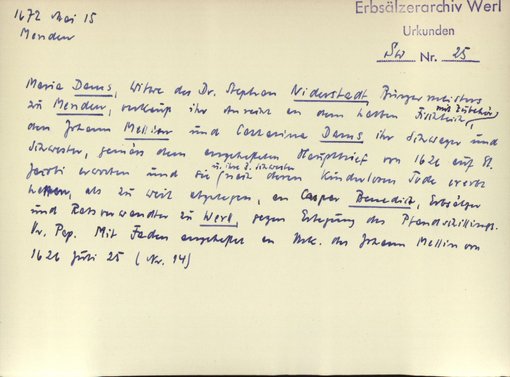 1672 Mai 15
Menden
Erbsälzerarchiv Werl
Urkunden
Sw Nr. 25
Maria Dams, Witwe des Dr. Stephan Niderstadt, Bürgermeisters
zu Menden, verkauft ihr Anrecht an dem halben Fischteich, mit Zubehör
den Johann Mellin und Catharina Dams ihr Schwager und
Schwester, gemäss dem angehefteten Hauptbrief von 1626 auf St.
Jacobi erworben und sie u. ihre Schwester (nach deren kinderlosem Tode ererbt
hatten, als zu weit abgelegen, an Caspar Benedict, Erbsälzer
und Ratsverwandter zu Werl, gegen Erlegung des Pfandschillings.
Or. Pap. Mit Faden angeheftet an Urk. des Johann Mellin von
1626 Juli 25 (Nr. 14)